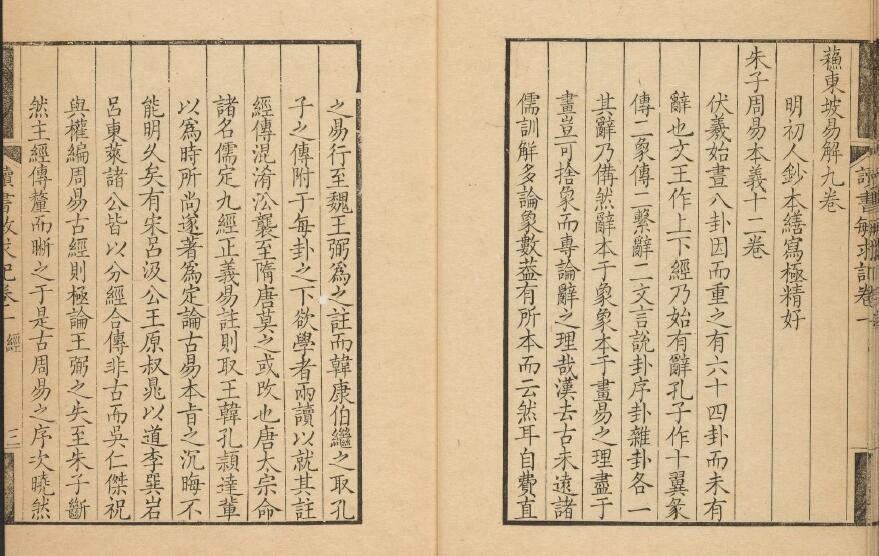 蘓東坡易解九卷
明初人鈔本繕寫極精好
朱子周易本義十二卷
伏羲始畫八卦因而重之有六十四卦而未有
辭也文王作上下經乃始有辭孔子作十翼彖
傳二象傳二繫辭二文言說卦序卦雜卦各一
其辭乃備然辭本于象象本于畫易之理盡于
畫豈可捨象而專論辭之理哉漢去古未遠諸
儒訓解多論象數葢有所本而云然耳自費直
之易行至魏王弼為之註而韓康伯繼之取孔
子之傳附于每卦之下欲學者兩讀以就其註
經傳混淆沿襲至隋唐莫之或改也唐太宗命
諸名儒定九經正義易註則取王韓孔頴達軰
以為時所尚遂著為定論古易本旨之沉晦不
能明久矣有宋呂汲公王原叔晁以道李巽岩
呂東萊諸公皆以分經合傳非古而吳仁傑祝
與權編周易古經則極論王弼之失至朱子斷
然主經傳釐而晰之于是古周易之序次曉然
讀書敏求記卷一 經 三